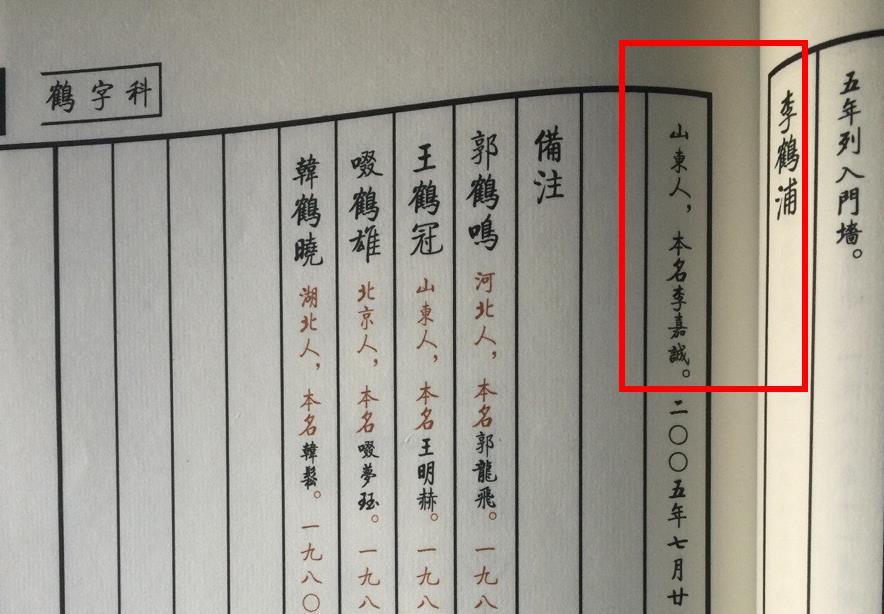 五年列入門墻。
李鶴浦
山東人，本名李嘉誠。二〇〇五年七月廿
備注
郭鶴鳴 河北人，本名郭龍飛。一九八
王鶴冠 山東人，本名王明赫。一九八
啜鶴雄 北京人，本名啜夢珏。一九八
韓鶴曉 湖北人，本名韓鬆。一九八〇
鶴字科